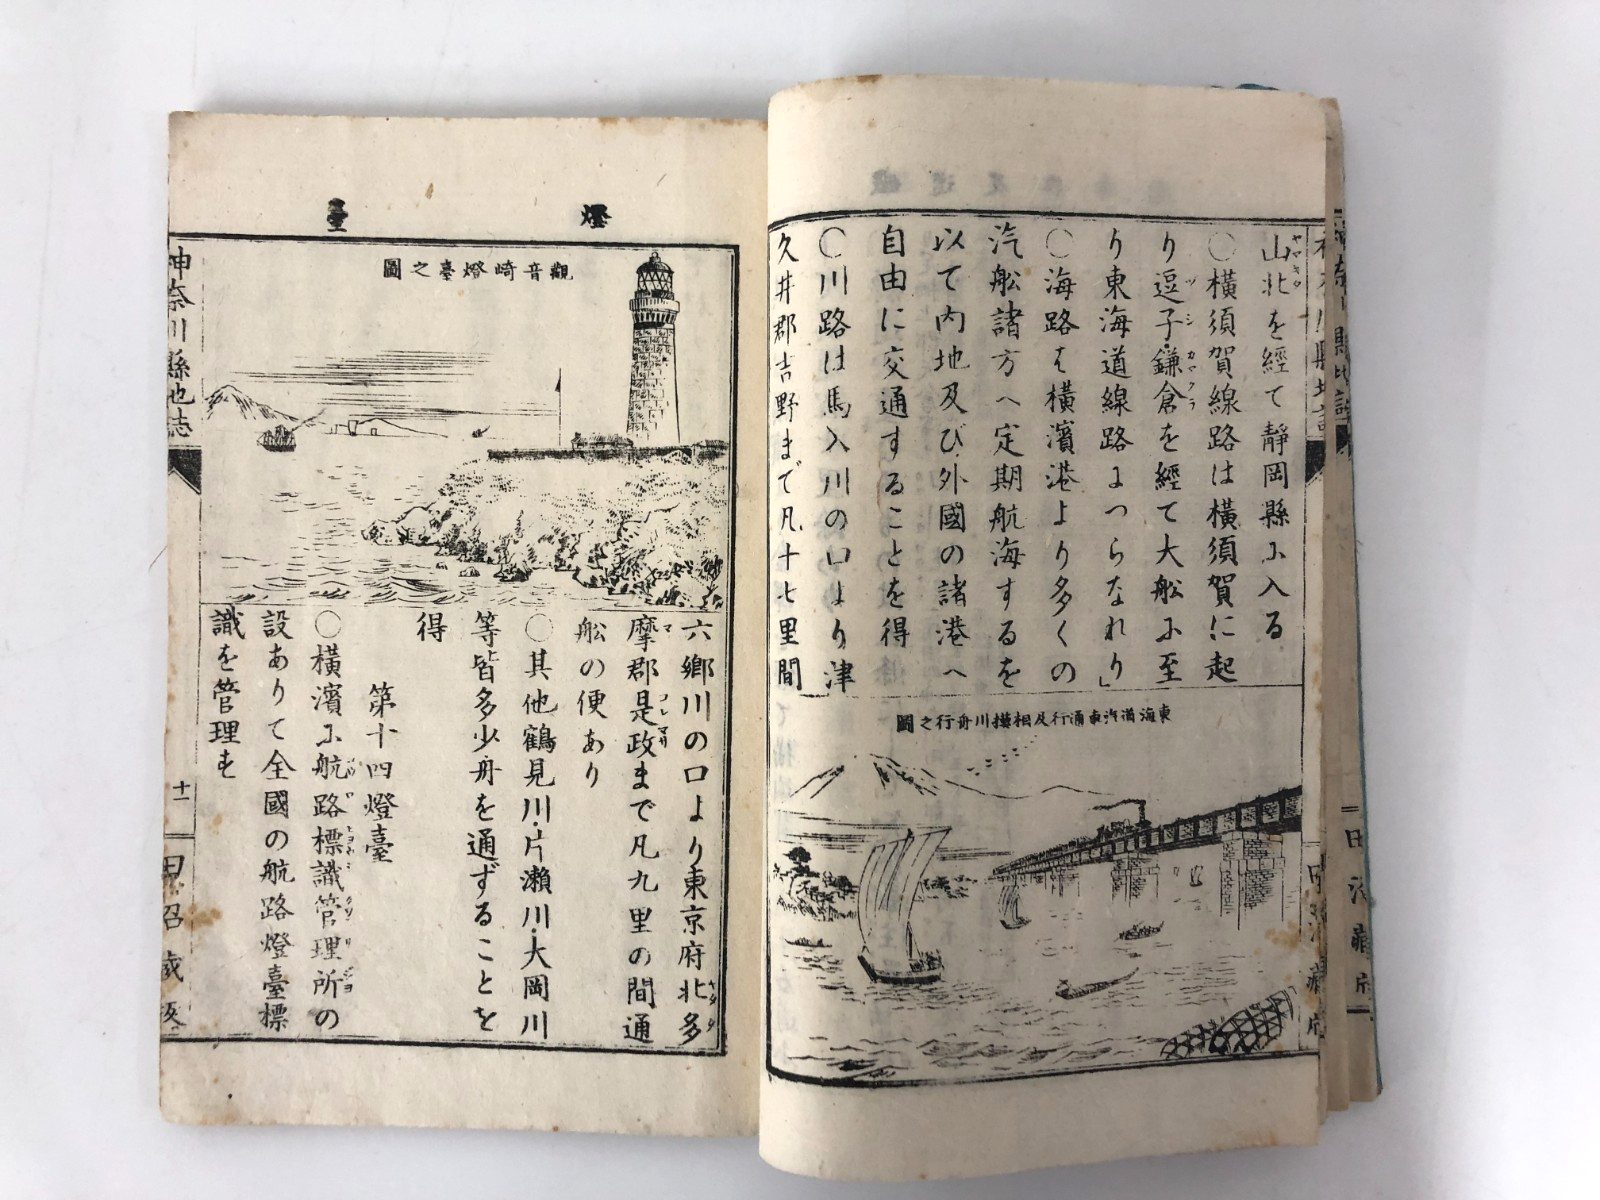 山北を經て靜岡縣に入る
○横須賀線路は横須賀に起
り逗子・鎌倉を經て大船に至
り東海道線路につらなれり」
○海路は横濱港より多くの
汽船諸方へ定期航海するを
以て内地及び外國の諸港へ
自由に交通することを得
○川路は馬入川の口より津
久井郡吉野まで凡十七里間
東海道汽車通行及相摸川舟行之圖
燈臺
觀音崎燈臺之圖
六郷川の口より東京府北多
摩郡是政まで凡九里の間通
船の便あり
○其他鶴見川・片瀬川・大岡川
等皆多少舟を通ずることを
得
第十四燈臺
○横濱に航路標識管理所の
設ありて全國の航路燈臺標
識を管理す
神奈川縣地誌
十一
田沼藏版